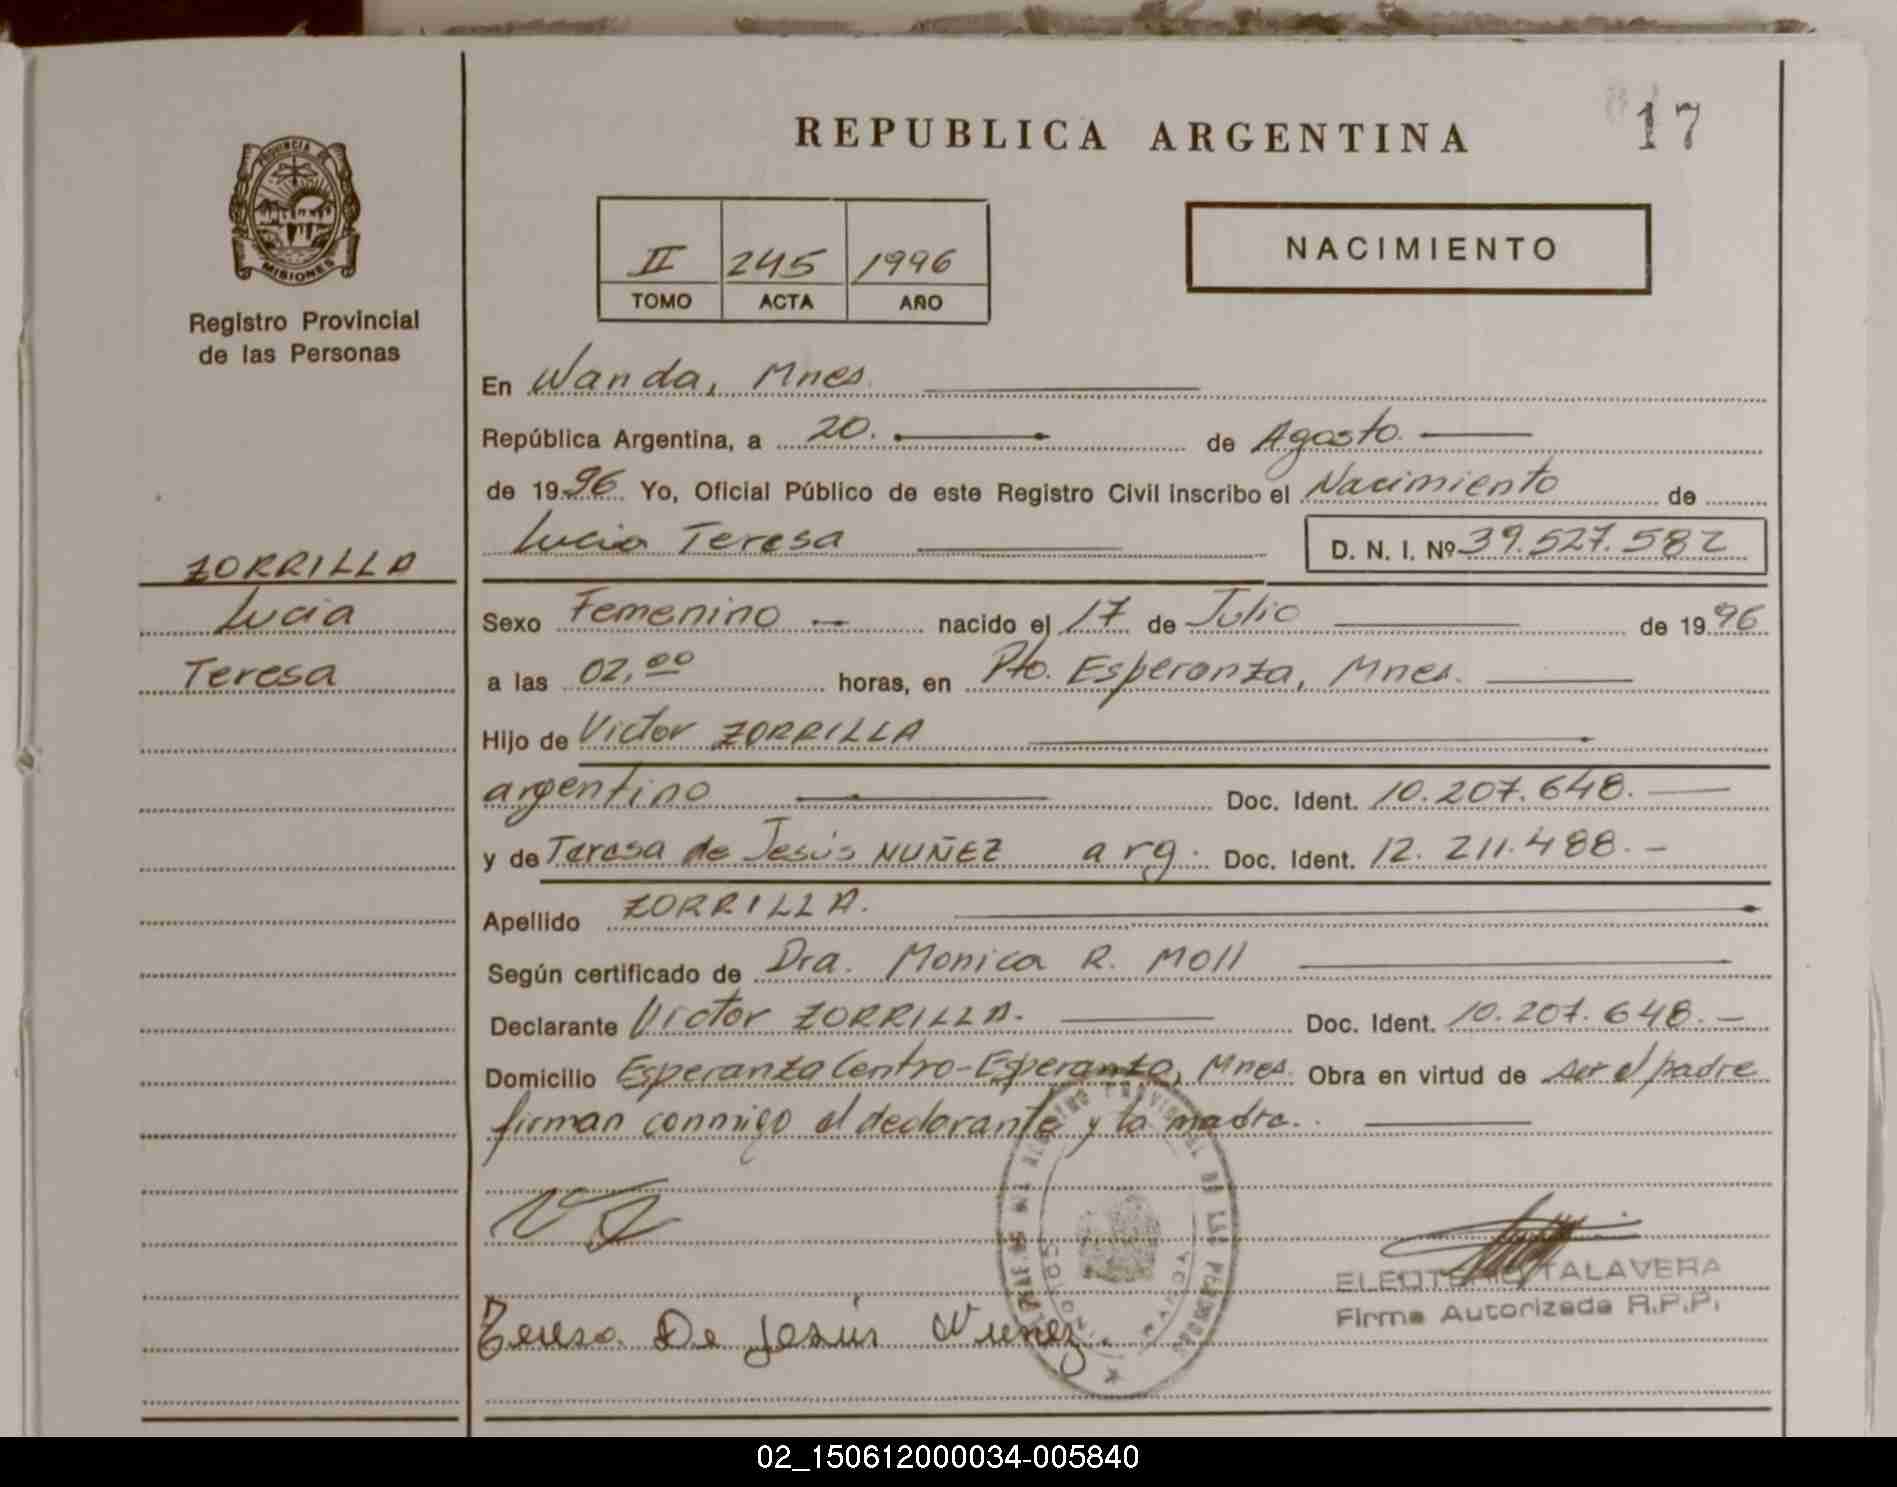 17
REPUBLICA ARGENTINA
PROVINCIA DE
MISIONES
Registro Provincial
de las Personas
II 245 1996
TOMO ACTA AÑO
NACIMIENTO
En Wanda, Mnes.
República Argentina, a 20. de Agosto.
de 1996 Yo, Oficial Público de este Registro Civil inscribo el Nacimiento de
Lucia Teresa D. N. I. Nº 39.527.582
ZORRILLA
Lucia
Teresa
Sexo Femenino nacido el 17 de Julio de 1996
a las 02,00 horas, en Pto. Esperanza, Mnes.
Hijo de Victor ZORRILLA
argentino Doc. Ident. 10.207.648.
y de Teresa de Jesús NUÑEZ arg. Doc. Ident. 12.211.488.-
Apellido ZORRILLA.
Según certificado de Dra. Monica R. Moll
Declarante Victor ZORRILLA. Doc. Ident. 10.207.648.-
Domicilio Esperanza Centro-Esperanza, Mnes. Obra en virtud de ser el padre
firman conmigo el declarante y la madre.
Teresa De Jesús Nuñez
TALAVERA
Firma Autorizada R.P.P.
WANDA
02_150612000034-005840